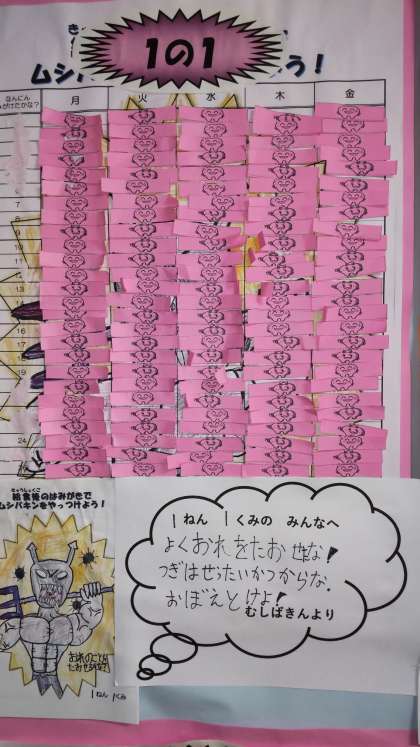 1の1
ムシバ
う!
なんにん
月 火 水 木 金
7
8
9
10
11
12
13
14
16
17
18
19
24
きゅうしょくご
給食後のはみがきで
ムシバキンをやっつけよう!
おれのことが
たおせるかな?
1ねん 1くみ
1ねん 1くみの みんなへ
よくおれをたおせたな!
つぎはぜったいかつからな。
おぼえとけよ!
むしばきんより